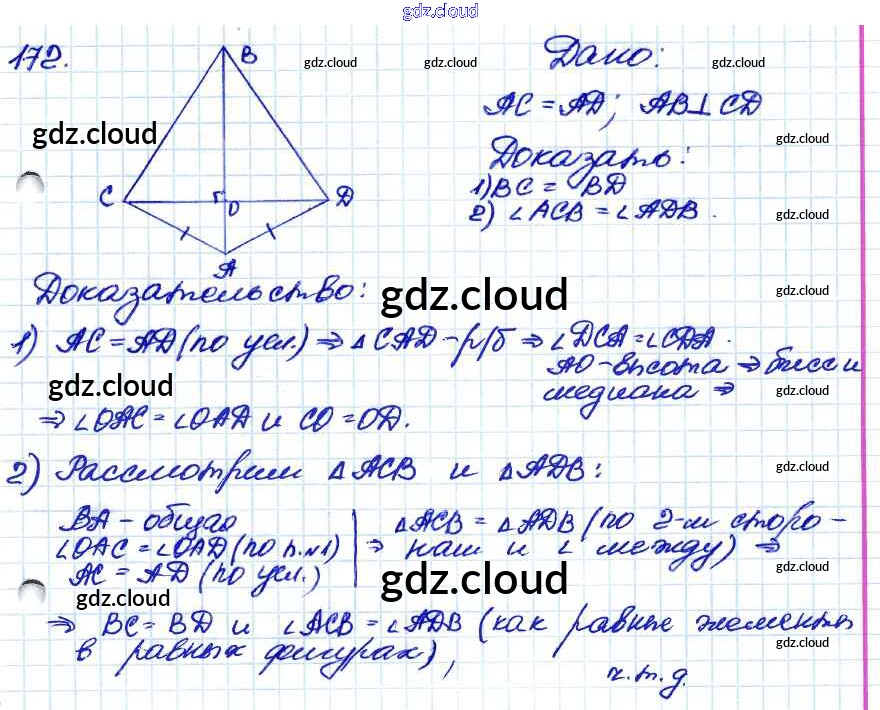 gdz.cloud
172.
B
gdz.cloud
gdz.cloud
Дано:
gdz.cloud
AC = AD; AB⊥CD
gdz.cloud
gdz.cloud
Доказать:
C
O
D
1) BC = BD
gdz.cloud
2) ∠ACB = ∠ADB.
gdz.cloud
A
Доказательство:
gdz.cloud
gdz.cloud
1) AC = AD (по усл.) ⇒ △CAD - р/б ⇒ ∠DCA = ∠CDA.
gdz.cloud
AO - высота ⇒ бисс и
gdz.cloud
медиана ⇒
gdz.cloud
⇒ ∠OAC = ∠OAD и CO = OD.
2) Рассмотрим △ACB и △ADB:
gdz.cloud
BA - общая
△ACB = △ADB (по 2-м сторо-
∠OAC = ∠OAD (по п.№1)
⇒ нам и ∠ между) ⇒
gdz.cloud
AC = AD (по усл.)
gdz.cloud
gdz.cloud
gdz.cloud
⇒ BC = BD и ∠ACB = ∠ADB (как равные элементы
gdz.cloud
в равных фигурах),
ч.т.д.